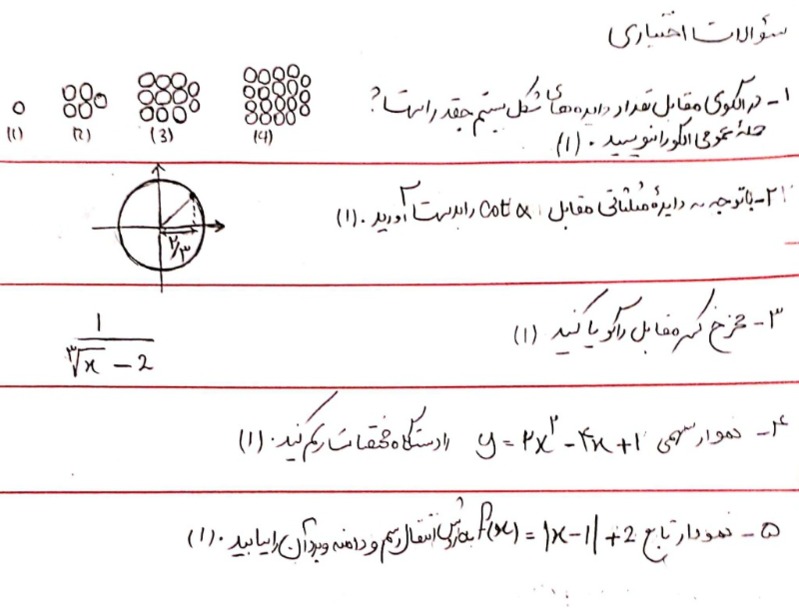 سؤالات اختیاری
۱- در الگوی مقابل تعداد دایره‌های شکل بیستم چقدر است؟
جملهٔ عمومی الگو را بنویسید. (۱)
(1) (2) (3) (4)
۲- با توجه به دایرهٔ مثلثاتی مقابل، cot α را بدست آورید. (۱)
۲/۳
۳- مخرج کسر مقابل را گویا کنید (۱)
1
³√x - 2
۴- نمودار سهمی y = ۲x² - ۴x + 1 را در دستگاه مختصات رسم کنید. (۱)
۵- نمودار تابع f(x) = |x-1| + 2 به روش انتقال رسم و دامنه و برد آن را بیابید. (۱)